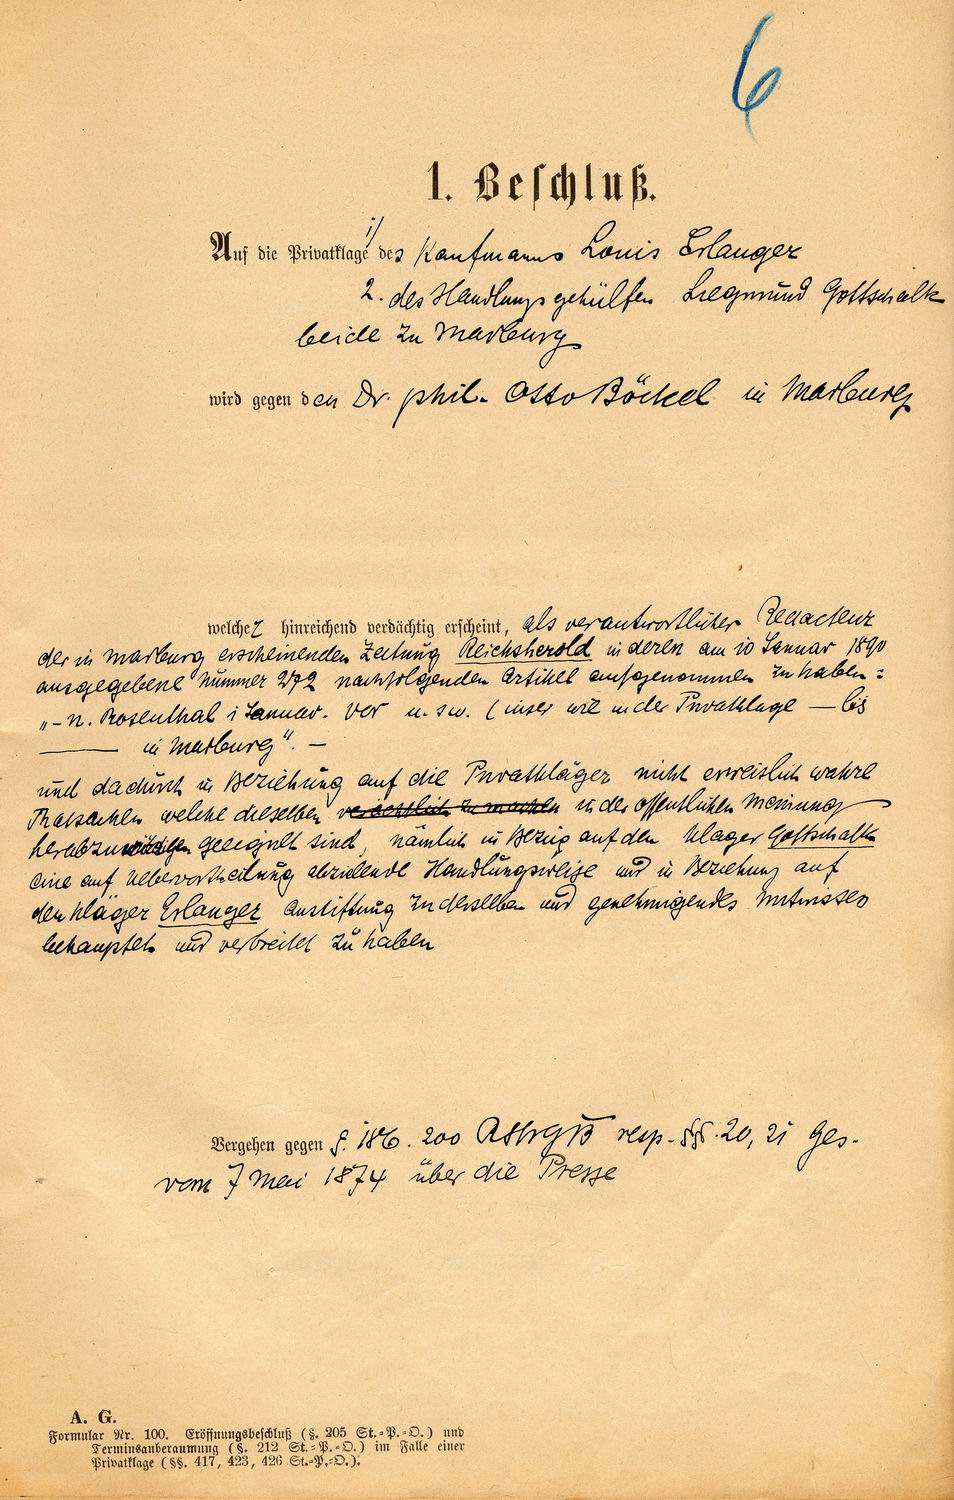 6
1. Beschluß.
Auf die Privatklage 1/ des Kaufmanns Louis Erlanger
2. des Handlungsgehülfen Siegmund Gottschalk
beide zu Marburg
wird gegen den Dr. phil. Otto Böckel in Marburg
welcher hinreichend verdächtig erscheint, als verantwortlicher Redacteur
der in Marburg erscheinenden Zeitung Reichsherold in deren am 10 Januar 1890
ausgegebene Nummer 272 nachfolgenden Artikel aufgenommen zu haben:
„– n. Rosenthal 1 Januar. Vor u. sw. (inser wie in der Privatklage — bis
——— in Marburg". —
und dadurch in Beziehung auf die Privatkläger nicht erweislich wahre
Thatsachen welche dieselben verächtlich zu machen in der öffentlichen Meinung
herabzuwürdigen geeignet sind, nämlich in Bezug auf den Kläger Gottschalk
eine auf Uebervortheilung abzielende Handlungsweise und in Beziehung auf
den Kläger Erlanger Anstiftung zu derselben und genehmigendes Mitwissen
behauptet und verbreitet zu haben
Vergehen gegen §. 186. 200 RStrGB resp. §§. 20, 21 Ges.
vom 7 Mai 1874 über die Presse
A. G.
Formular Nr. 100. Eröffnungsbeschluß (§. 205 St.=P.=O.) und
Terminsanberaumung (§. 212 St.=P.=O.) im Falle einer
Privatklage (§§. 417, 423, 426 St.=P.=O.).